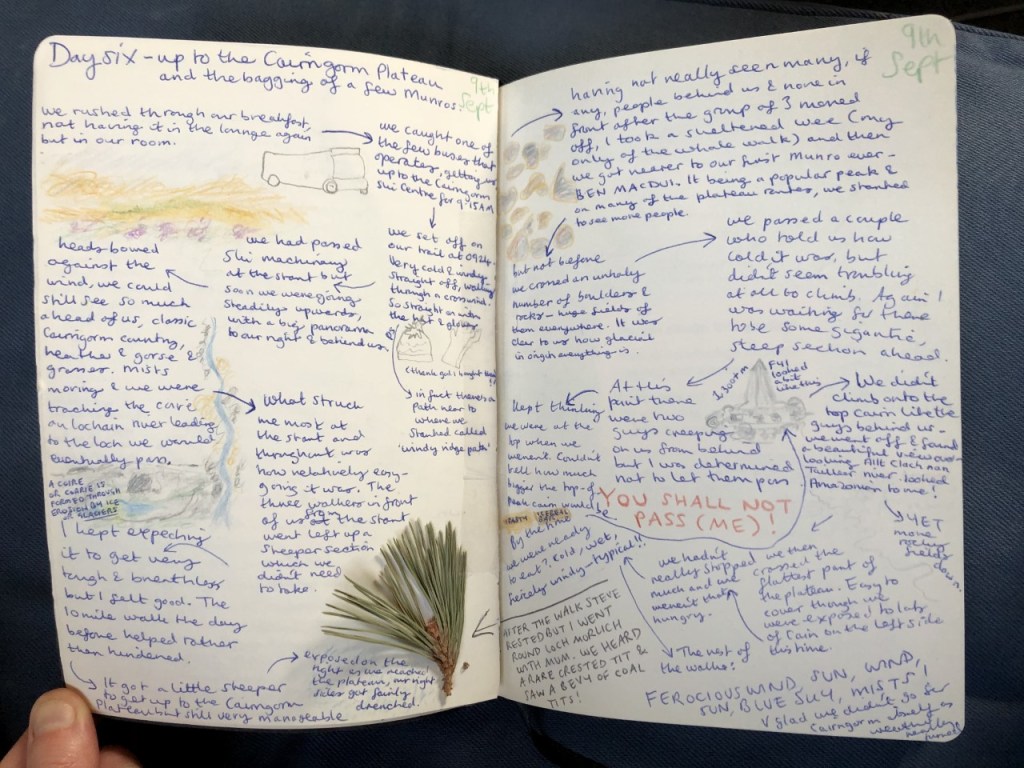 Day six - up to the Cairngorm Plateau
and the bagging of a few Munros.
9th
Sept
we rushed through our breakfast,
not having it in the lounge again
but in our room.
we caught one of
the few buses that
operates, getting us
up to the Cairngorm
Ski Centre for 9.15AM
we set off on
our trail at 0924.
Very cold & windy
straight off, walking
through a crosswind.
So straight on with
the hat & gloves
(thank god I bought them!)
y in fact there's a
path near to
where we
started called
'windy ridge path'
we had passed
Ski machinary
at the start but
soon we were going
steadily upwards,
with a big panorama
to our right & behind us.
heads bowed
against the
wind, we could
still see so much
ahead of us, classic
Cairngorm country,
heather & gorse &
grasses. Mists
moving & we were
tracking the coire
an lochain river leading
to the loch we would
eventually pass.
A COIRE
OR CORRIE IS
FORMED THROUGH
EROSION BY ICE
OR GLACIERS
what struck
me most at
the start and
throughout was
how relatively easy-
going it was. The
three walkers in front
of us from the start
went left up a
steeper section
which we
didn't need
to take.
I kept expecting
it to get very
tough & breathless
but I felt good. The
10 mile walk the day
before helped rather
than hindered.
It got a little steeper
to get up to the Cairngorm
Plateau but still very manageable
exposed on the
right as we reached
the plateau, our right
sides got fairly
drenched.
AFTER THE WALK STEVE
RESTED BUT I WENT
ROUND LOCH MORLICH
WITH MUM. WE HEARD
A RARE CRESTED TIT &
SAW A BEVY OF COAL
TITS!
9th
Sept
having not really seen many, if
any, people behind us & none in
front after the group of 3 moved
off, I took a sheltered wee (my
only of the whole walk) and then
we got nearer to our first Munro ever -
BEN MACDUI. It being a popular peak &
on many of the plateau routes, we started
to see more people.
but not before
we crossed an unholy
number of boulders &
rocks - huge fields of
them everywhere. It was
clear to us how glacial
in origin everything is.
we passed a couple
who told us how
cold it was, but
didn't seem troubling
at all to climb. Again I
was waiting for there
to be some gigantic,
steep section ahead.
At this
point there
were two
guys creeping
on us from behind
but I was determined
not to let them pass
YOU SHALL NOT
PASS (ME)!
1,300m
FYI
looked
a bit
like this
We didn't
climb onto the
top cairn like the
guys behind us -
we went off & found
a beautiful view over-
looking Allt Clach nan
Taillear river. Looked
Amazonian to me!
YET
more
rocky
fields
down.
kept thinking
we were at the
top when we
weren't. Couldn't
tell how much
bigger the top-of-
peak cairn would be
By the time
we were ready
to eat? Cold, wet,
fiercely windy - typical!!
we hadn't
really stopped
much and we
weren't that
hungry.
we then
crossed the
flattest part of
the plateau. Easy to
cover though we
were exposed to lots
of rain on the left side
this time.
The rest of
the walk?
FEROCIOUS WIND, SUN, WIND,
SUN, BLUE SKY, MISTS!
V glad we didn't go for
Cairngorm